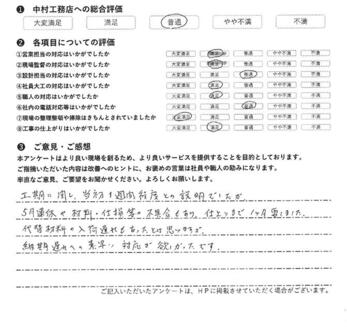 ❶ 中村工務店への総合評価
大変満足 満足 普通 やや不満 不満
❷ 各項目についての評価
①営業担当の対応はいかがでしたか 大変満足 満足 普通 やや不満 不満
②現場監督の対応はいかがでしたか 大変満足 満足 普通 やや不満 不満
③設計担当の対応はいかがでしたか 大変満足 満足 普通 やや不満 不満
④社員大工の対応はいかがでしたか 大変満足 満足 普通 やや不満 不満
⑤職人の対応はいかがでしたか 大変満足 満足 普通 やや不満 不満
⑥社内の電話対応等はいかがでしたか 大変満足 満足 普通 やや不満 不満
⑦現場の整理整頓や掃除はきちんとされていましたか 大変満足 満足 普通 やや不満 不満
⑧工事の仕上がりはいかがでしたか 大変満足 満足 普通 やや不満 不満
❸ ご意見・ご感想
本アンケートはより良い現場を創るため、より良いサービスを提供することを目的としております。
ご指摘いただいた内容は改善へのヒントに、お褒めの言葉は社員や職人の励みになります。
率直なご意見、ご要望をお聞かせください。よろしくお願いします。
工期に関し、当初1週間程度との説明でしたが
5月連休や材料・仕様等の不具合もあり、仕上りまで1ヶ月要しました。
代替材料の入荷遅れもあったとは思いますが、
納期遅れへの素早い対応が欲しかったです。
ご記入いただいたアンケートは、HPに掲載させていただく場合がございます。